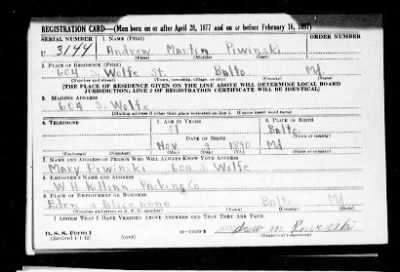 REGISTRATION CARD—(Men born on or after April 28, 1877 and on or before February 16, 1897)
SERIAL NUMBER 1. NAME (Print) ORDER NUMBER
U 3144 Andrew Martin Piwinski
(First) (Middle) (Last)
2. PLACE OF RESIDENCE (Print)
604 S. Wolfe St. Balto. Md.
(Number and street) (Town, township, village, or city) (County) (State)
[THE PLACE OF RESIDENCE GIVEN ON THE LINE ABOVE WILL DETERMINE LOCAL BOARD
JURISDICTION; LINE 2 OF REGISTRATION CERTIFICATE WILL BE IDENTICAL]
3. MAILING ADDRESS
604 S. Wolfe
[Mailing address if other than place indicated on line 2. If same insert word same]
4. TELEPHONE 5. AGE IN YEARS 6. PLACE OF BIRTH
51 Balto.
DATE OF BIRTH (Town or county)
Nov 9 1890 Md.
(Exchange) (Number) (Mo.) (Day) (Yr.) (State or country)
7. NAME AND ADDRESS OF PERSON WHO WILL ALWAYS KNOW YOUR ADDRESS
Mary Piwinski 604 S. Wolfe
8. EMPLOYER'S NAME AND ADDRESS
W H Killian Packing Co.
9. PLACE OF EMPLOYMENT OR BUSINESS
Eden Aliceanna Balto Md.
(Number and street or R. F. D. number) (Town) (County) (State)
I AFFIRM THAT I HAVE VERIFIED ABOVE ANSWERS AND THAT THEY ARE TRUE.
D. S. S. Form 1
(Revised 4-1-42) (over) Andrew M.
(Registrant's signature)